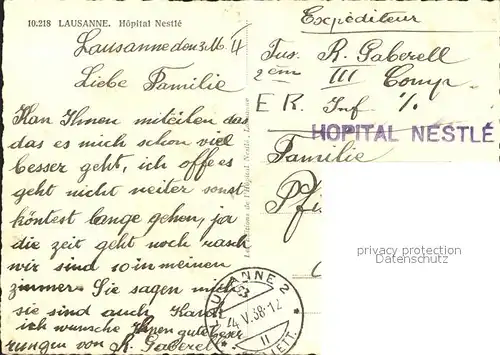 10.218 LAUSANNE. Hôpital Nestlé
Lausanne den 3. M.
Liebe Familie
Kan Ihnen miteilen das
das es mich schon viel
besser geht, ich offe es
geht nicht weiter sonst
köntest lange gehen, ja
die zeit geht noch rasch
wir sind 10 in meinen
zimmer. Sie sagen mich
sie sind auch
ich wünsche Ihnen gute Besse
rungen von R. Gaberell
Expéditeur
Fus. R. Gaberell
III Comp.
E R. Inf
HOPITAL NESTLÉ
Familie
Pfi
LAUSANNE 2
4 V.38-12
II
LETT.
privacy protection
Datenschutz